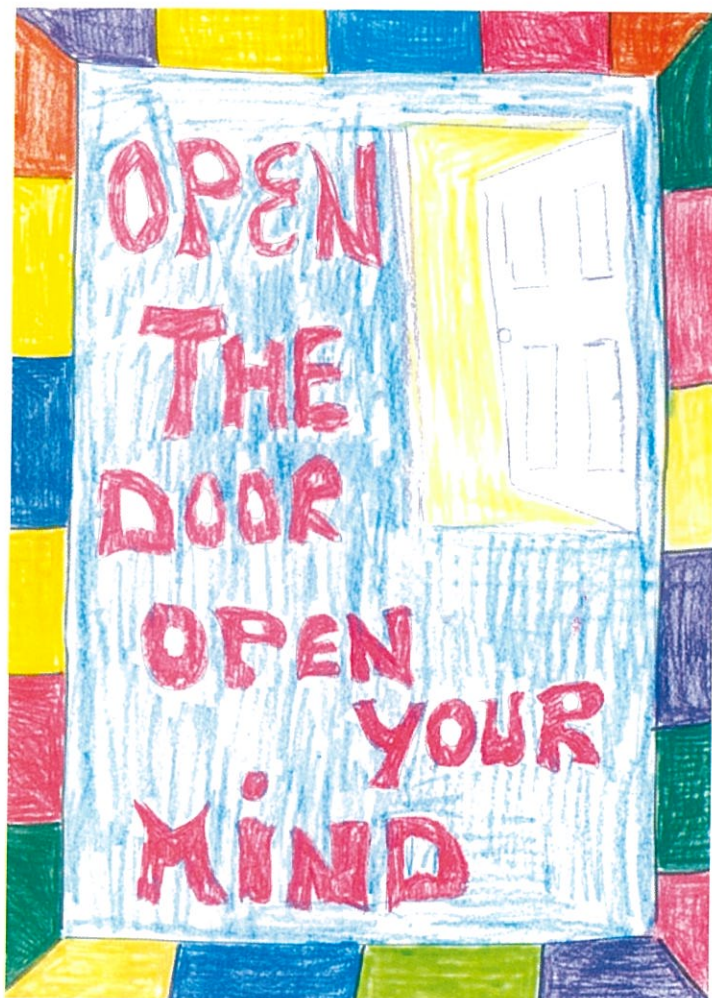 OPEN
THE
DOOR
OPEN
YOUR
MiND